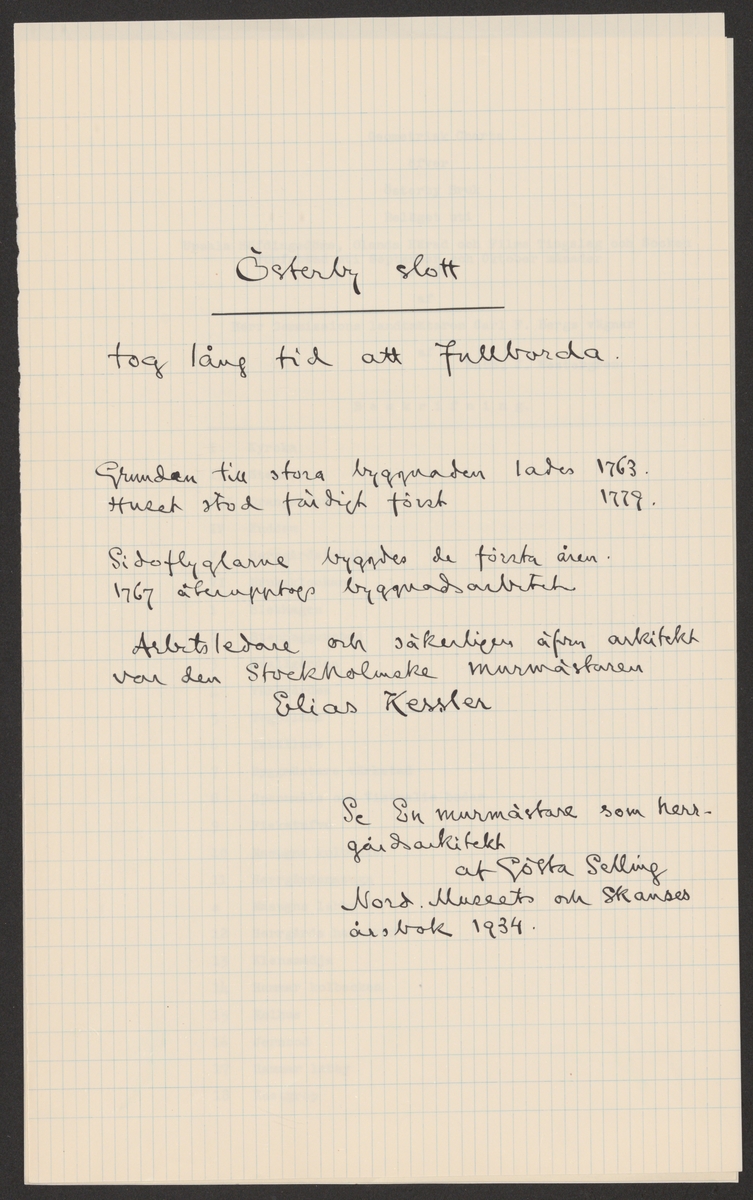 Österby slott
tog lång tid att fullborda.
Grunden till stora byggnaden lades 1763.
Huset stod färdigt först 1779.
Sidoflyglarne byggdes de första åren.
1767 återupptogs byggnadsarbetet
Arbetsledare och säkerligen äfven arkitekt
var den Stockholmske murmästaren
Elias Kessler
Se En murmästare som herr-
gårdsarkitekt
af Gösta Selling
Nord. Museets och Skanses
årsbok 1934.